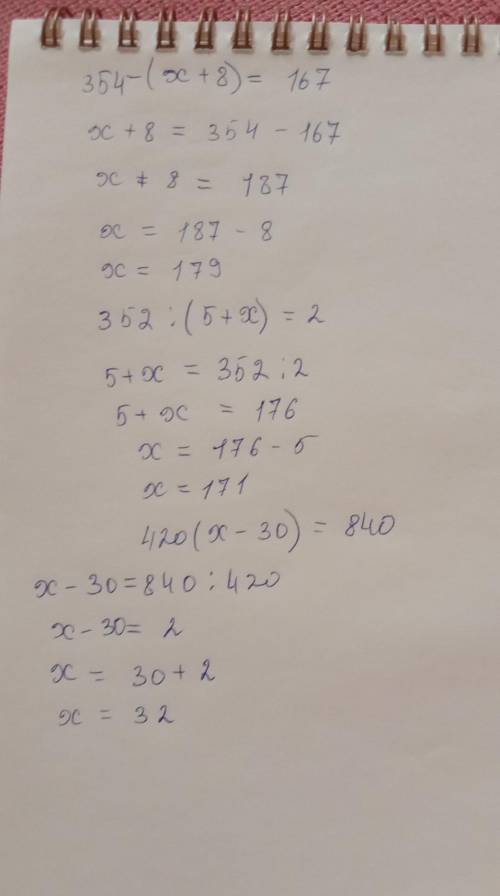 354-(x+8)= 167
x+8 = 354 - 167
x + 8 = 187
x = 187 - 8
x = 179
352:(5+x) = 2
5+x = 352:2
5+x = 176
x = 176 - 5
x = 171
420(x-30) = 840
x-30=840:420
x-30= 2
x = 30+2
x = 32